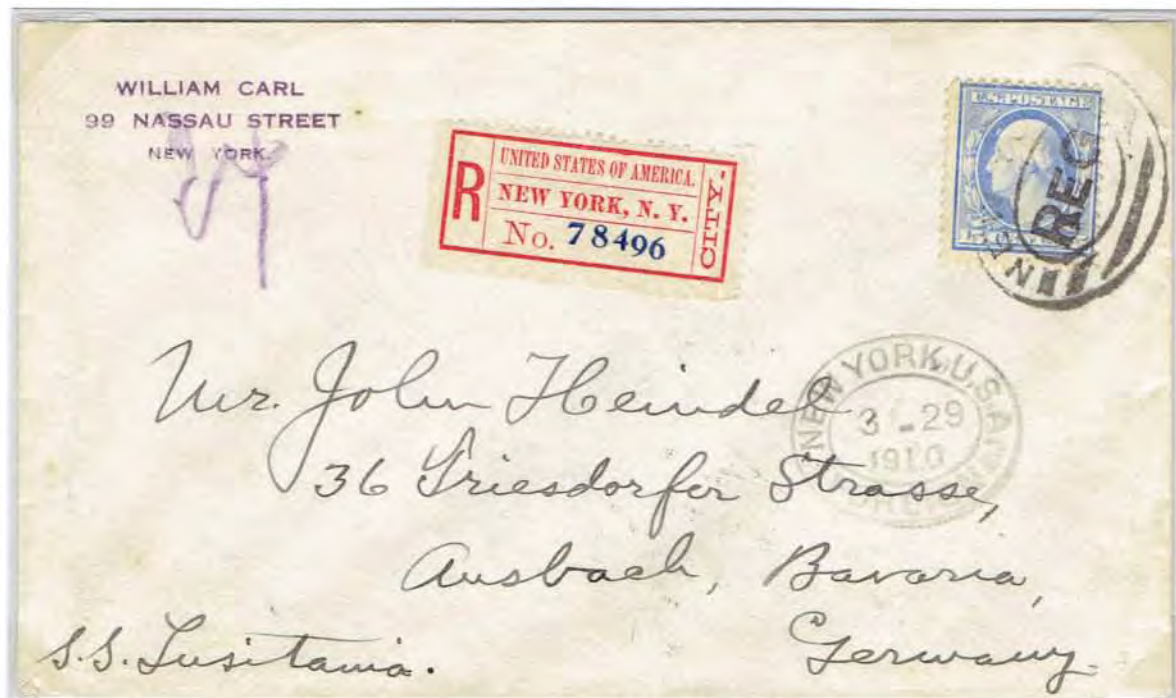 WILLIAM CARL
99 NASSAU STREET
NEW YORK.
R
UNITED STATES OF AMERICA.
NEW YORK, N. Y.
No. 78496
CITY.
U.S. POSTAGE
REG
NEW YORK, U.S.A.
3 - 29
1910
Mr. John Heindel
36 Triesdorfer Strasse,
Ansbach, Bavaria,
Germany.
S.S. Lusitania.